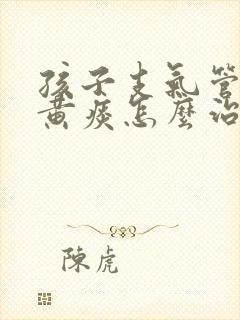 孩子支氣管
黃痰怎麼治
陳虎